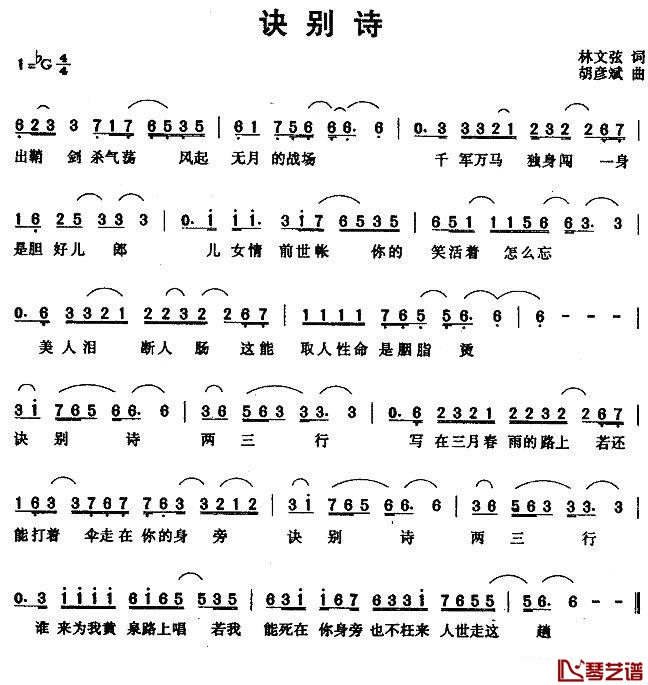 诀别诗
1=♭G 4/4
林文弦 词
胡彦斌 曲
623 3 717 6535 | 61 756 66· 6 | 0·3 3321 232 267 |
出鞘 剑杀气荡 风起 无月的战场 千军万马 独身闯 一身
16 25 33 3 | 0·i ii· 3i7 6535 | 651 1156 63· 3 |
是胆好儿郎 儿女情 前世帐 你的 笑活着 怎么忘
0·6 3321 2232 267 | 1111 765 56· 6 | 6 - - - |
美人泪 断人肠 这能 取人性命是胭脂 烫
3i 765 66· 6 | 36 563 33· 3 | 0·6 2321 2232 267 |
诀别 诗 两三 行 写在三月春雨的路上 若还
163 3767 763 3212 | 3i 765 66· 6 | 36 563 33· 3 |
能打着 伞走在你的身 旁 诀别 诗 两三 行
0·3 iiii i765 535 | 63i i67 6331 2765 | 56· 6 - - ‖
谁 来为我黄 泉路上唱 若我 能死在 你身旁 也不枉来 人世走这 趟
琴艺谱